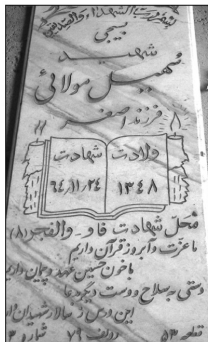 بسم رب الشهداء والصدیقین
بسیجی
شهید
سهیل مولائی
فرزند اصغر
ولادت
۱۳۴۸
شهادت
۶۴/۱۱/۲۴
محل شهادت فاو - والفجر (۸)
ما عزت و آبرو ز قرآن داریم
با خون حسین عهد و پیمان داریم
دستی به سلاح و دست دیگر دعا
این درس ز سالار شهیدان
قطعه ۵۳ ردیف ۷۹ شماره